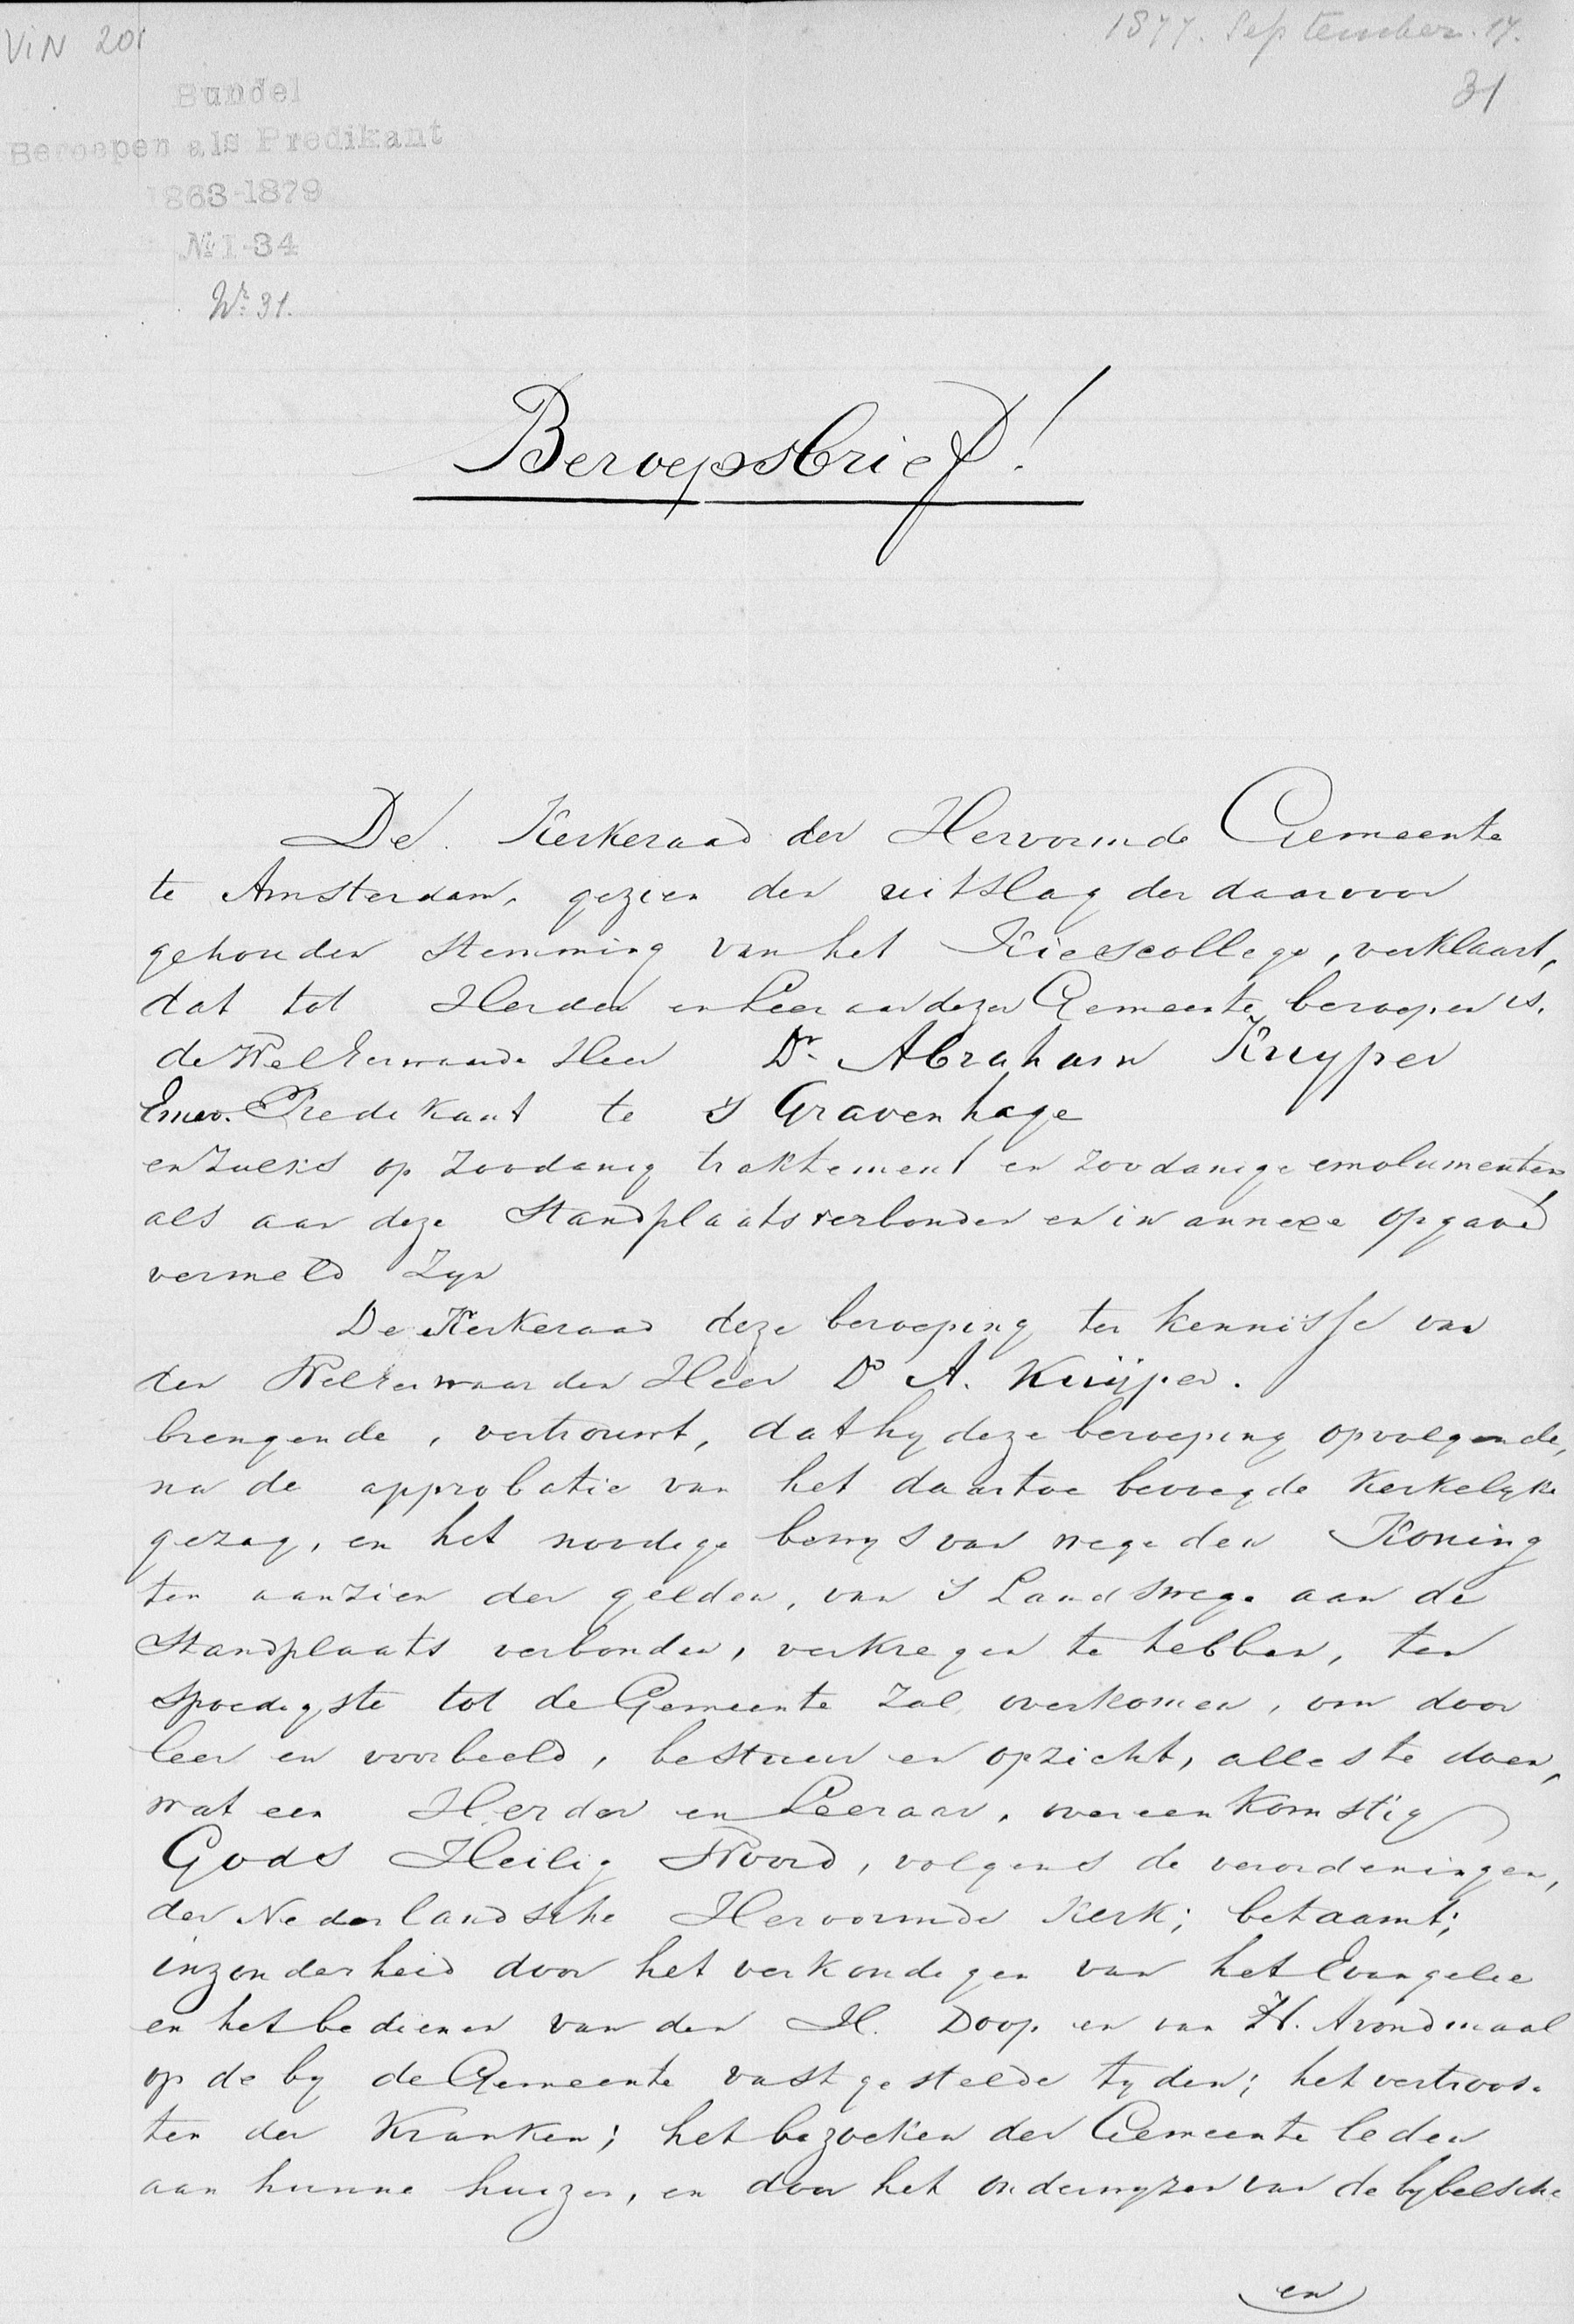 ViN 201
1877. September. 17.
31
Bundel
Beroepen als Predikant
1863-1879
№ I-34
Nr. 31.
Beroepsbrief!
De Kerkeraad der Hervormde Gemeente
te Amsterdam, gezien den uitslag der daarvoor
gehouden Stemming van het Kiescollege, verklaart,
dat tot Herder en Leeraar dezer Gemeente beroepen is.
de WelEerwaarde Heer Dr. Abraham Kuyper
Emer. Predikant te 's Gravenhage
en zulks op zoodanig traktement en zoodanige emolumenten
als aan deze Standplaats verbonden en in annexe opgave
vermeld zyn
De Kerkeraad deze beroeping ter kennisse van
den WelEerwaarden Heer Dr A. Kuÿper.
brengende, vertrouwt, dat hy deze beroeping opvolgende,
na de approbatie van het daartoe bevoegde Kerkelyke
gezag, en het noodige bewys van wege den Koning
ten aanzien der gelden, van 's Landswege aan de
Standplaats verbonden, verkregen te hebben, ten
spoedigste tot de Gemeente zal overkomen, om door
leer en voorbeeld, bestuur en opzicht, alles te doen,
wat een Herder en Leeraar, overeenkomstig
Gods Heilig Woord, volgens de verordeningen,
der Nederlandsche Hervormde Kerk; betaamt;
inzonderheid door het verkondigen van het Evangelie
en het bedienen van den H. Doop en van H. Avondmaal
op de by de Gemeente vastgestelde tyden; het vertroos-
ten der Kranken; het bezoeken der Gemeente leden
aan hunne huizen, en door het onderwyzen van de bybelsche
en